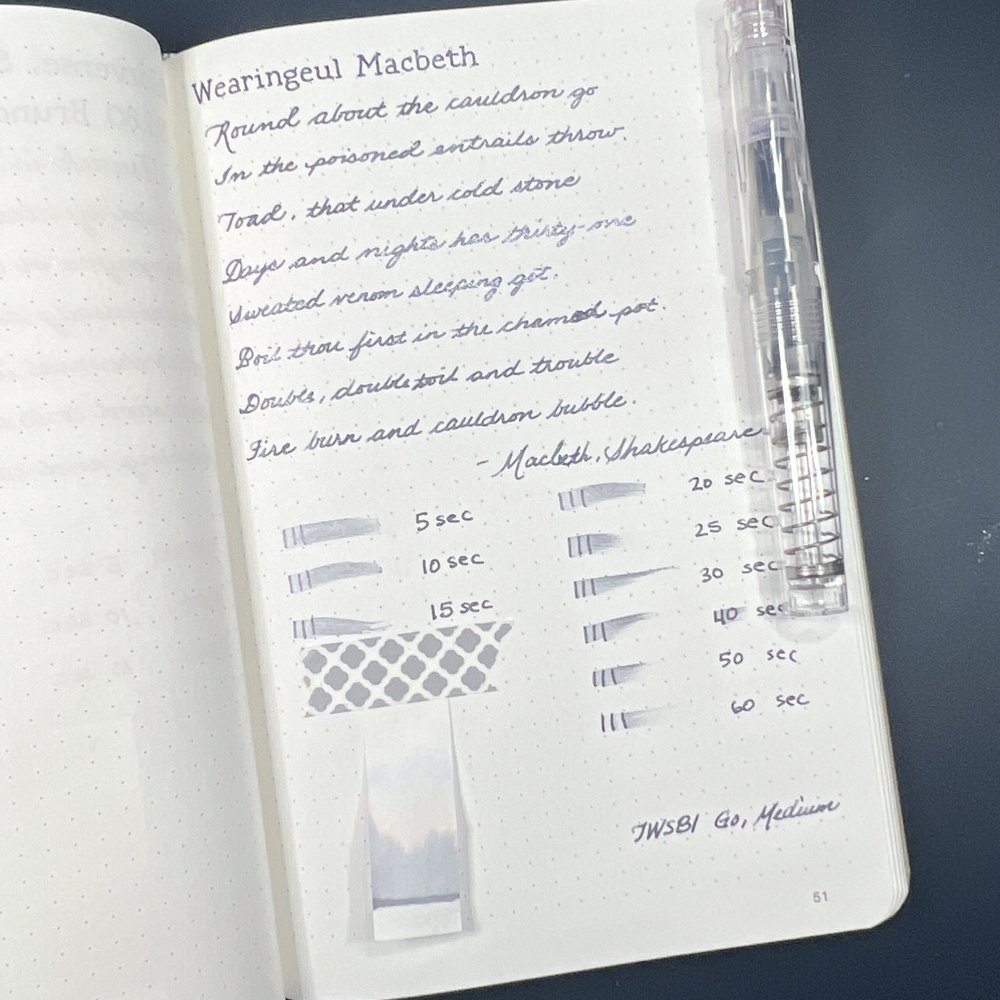 Wearingeul Macbeth
Round about the cauldron go
In the poisoned entrails throw.
Toad, that under cold stone
Days and nights has thirty-one
Sweated venom sleeping got.
Boil thou first in the charmed pot.
Double, double toil and trouble
Fire burn and cauldron bubble.
- Macbeth, Shakespeare
5 sec
10 sec
15 sec
20 sec
25 sec
30 sec
40 sec
50 sec
60 sec
TWSBI Go, Medium
51